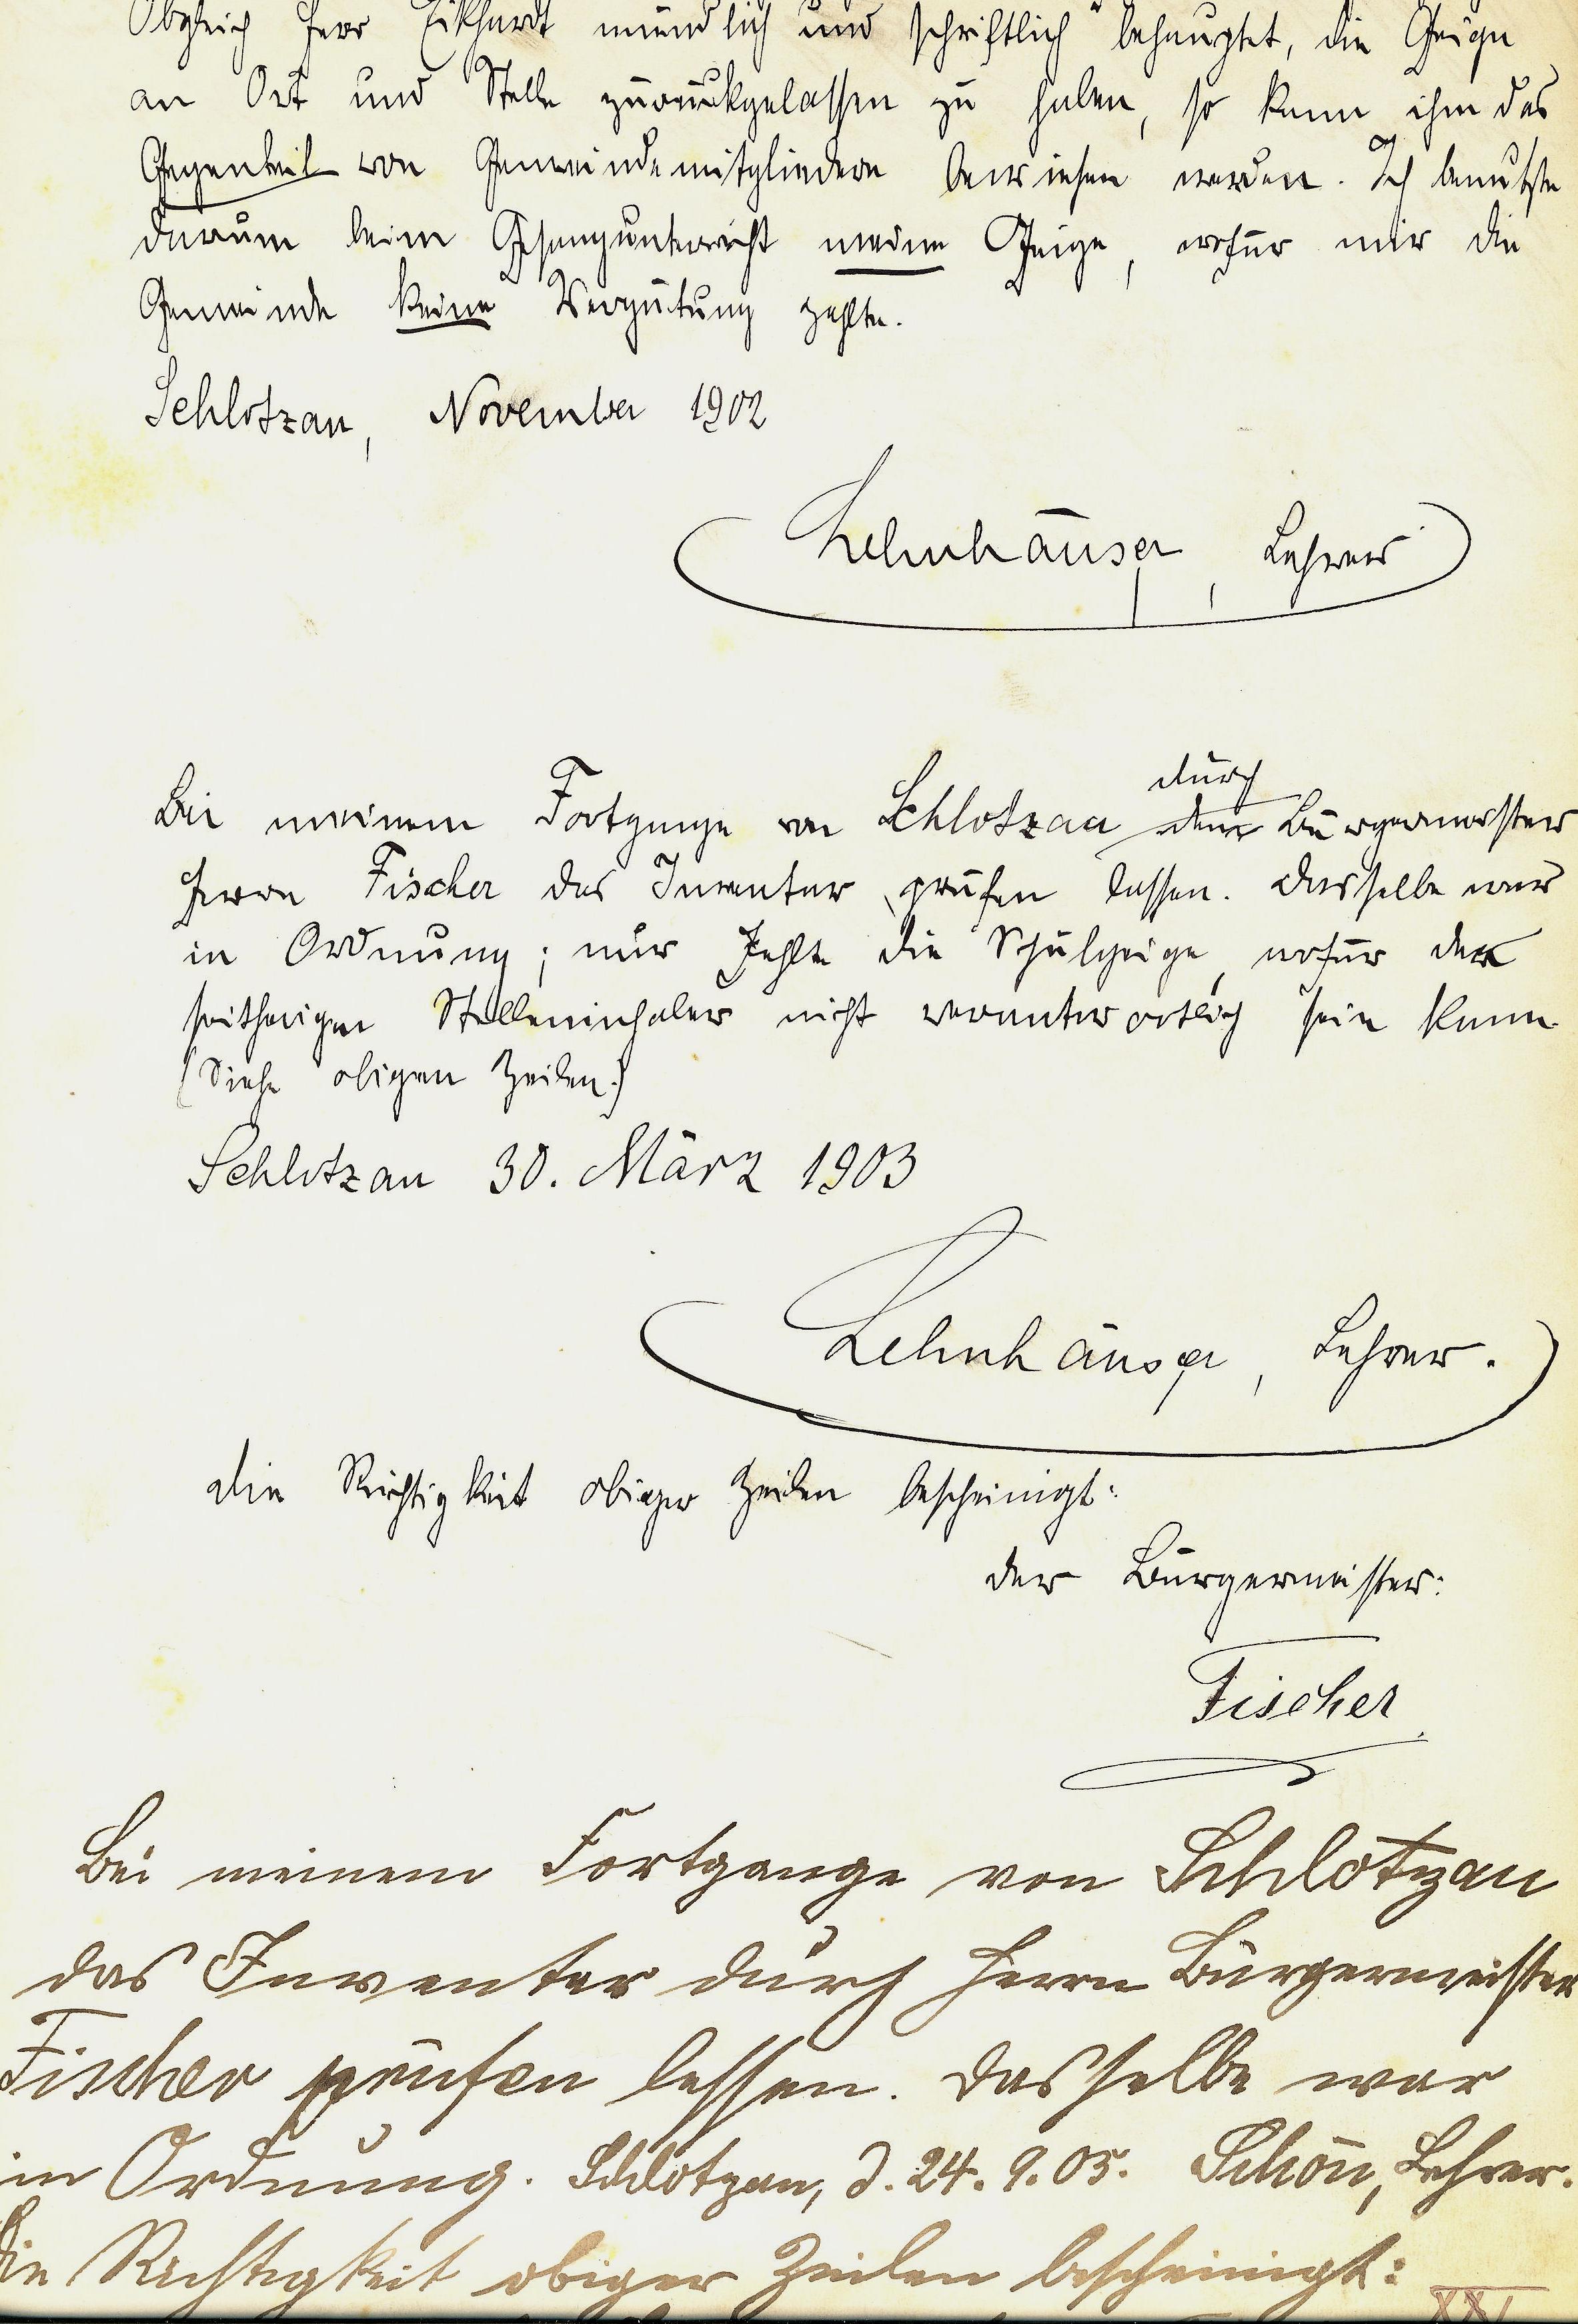 Obgleich Herr Eikhardt mündlich und schriftlich behauptet, die Geige
an Ort und Stelle zurückgelassen zu haben, so kann ihm das
Gegenteil von Gemeindemitgliedern bewiesen werden. Ich benutzte
darum beim Gesangunterricht meine Geige, wofür mir die
Gemeinde keine Vergütung zahlte.
Schlotzau, November 1902
Lehnhäuser, Lehrer
durch
Bei meinem Fortgange von Schlotzau dem Bürgermeister
Herrn Fischer das Inventar prüfen lassen. Dasselbe war
in Ordnung; nur fehlte die Schulgeige, wofür der
seitherigen Stelleninhaber nicht verantwortlich sein kann
(Siehe obigen Zeilen.)
Schlotzau 30. März 1903
Lehnhäuser, Lehrer.
Die Richtigkeit obiger Zeilen bescheinigt:
Der Bürgermeister:
Fischer
Bei meinem Fortgange von Schlotzau
das Inventar durch Herrn Bürgermeister
Fischer prüfen lassen. Dasselbe war
in Ordnung. Schlotzau, d. 24. 9. 05. Schön, Lehrer.
Die Richtigkeit obiger Zeilen bescheinigt:
XXI